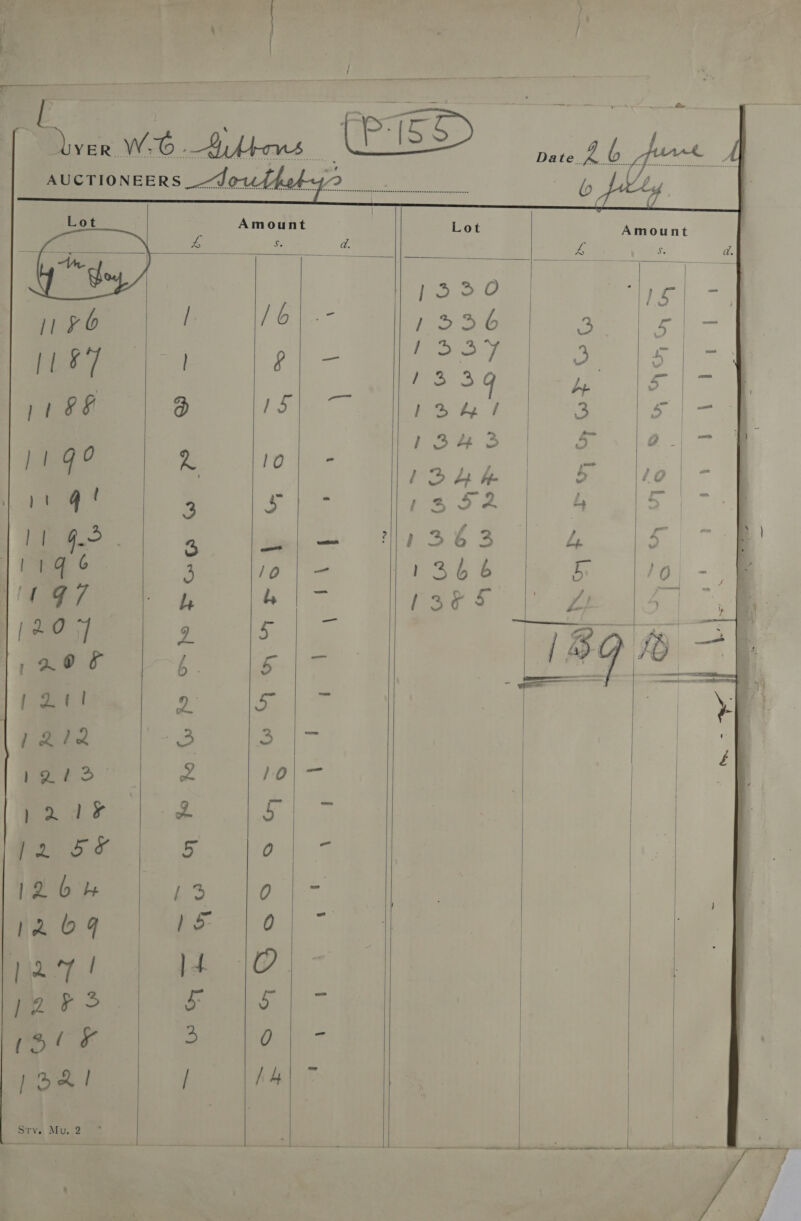 BUYER W. C. Gibbons (P.155) Date 26 June
AUCTIONEERS Sotheby's 6 July
Lot Amount
£ s. d.
4th Day
1186 1 16 -
1187 1 8 -
1188 3 15 -
1190 2 10 -
1191 3 5 -
1193 3 - -
1196 3 10 -
1197 4 4 -
1207 2 5 -
1208 6 5 -
1211 2 5 -
1212 3 3 -
1213 2 10 -
1218 2 5 -
1258 5 0 -
1264 13 0 -
1269 15 0 -
1271 14 0 -
1283 5 5 -
1318 3 0 -
1321 1 14 -
Lot Amount
£ s. d.
1330 15 -
1336 3 5 -
1337 3 5 -
1339 4 5 -
1341 3 5 -
1343 5 0 -
1344 5 10 -
1352 4 5 -
? 1363 4 5 -
1366 5 10 -
1385 4 5 -
139 10 -
Srv. Mu. 2